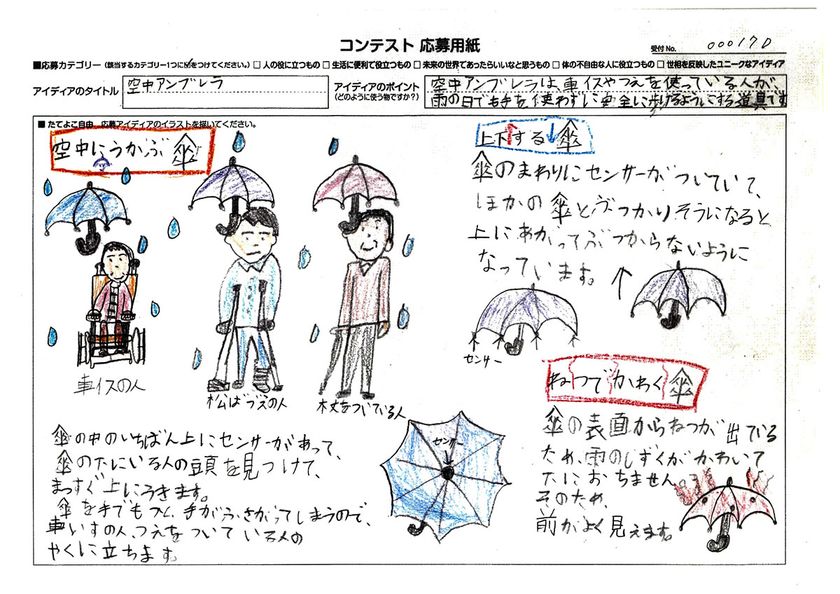 コンテスト 応募用紙
受付No. 00017D
■応募カテゴリー(該当するカテゴリー1つに☑をつけてください。) □ 人の役に立つもの □ 生活に便利で役立つもの □ 未来の世界であったらいいなと思うもの □ 体の不自由な人に役立つもの □ 世相を反映したユニークなアイディア
アイディアのタイトル
空中アンブレラ
アイディアのポイント
(どのように使う物ですか?)
空中アンブレラは、車イスやつえを使っている人が、
雨の日でも手を使わずに安全に歩けるようにする道具です
■ たてよこ自由 応募アイディアのイラストを描いてください。
空中にうかぶ傘
車イスの人
松ばづえの人
杖をついている人
傘の中のいちばん上にセンサーがあって、
傘の下にいる人の頭を見つけて、
まっすぐ上にうきます。
傘を手でもつと、手がふさがってしまうので、
車いすの人、つえをついている人の
やくに立ちます。
センサー
上下する傘
傘のまわりにセンサーがついていて、
ほかの傘とぶつかりそうになると
上にあがってぶつからないように
なっています。
センサー
ねつでかわく傘
傘の表面からねつが出ている
ため、雨のしずくがかわいて
下におちません。
そのため、
前がよく見えます。